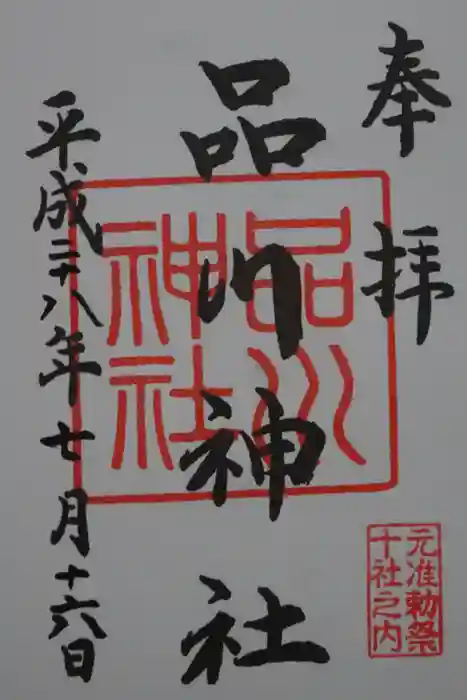 奉拝
品川神社
平成二十八年七月十六日
品川
神社
元准勅祭
十社之内